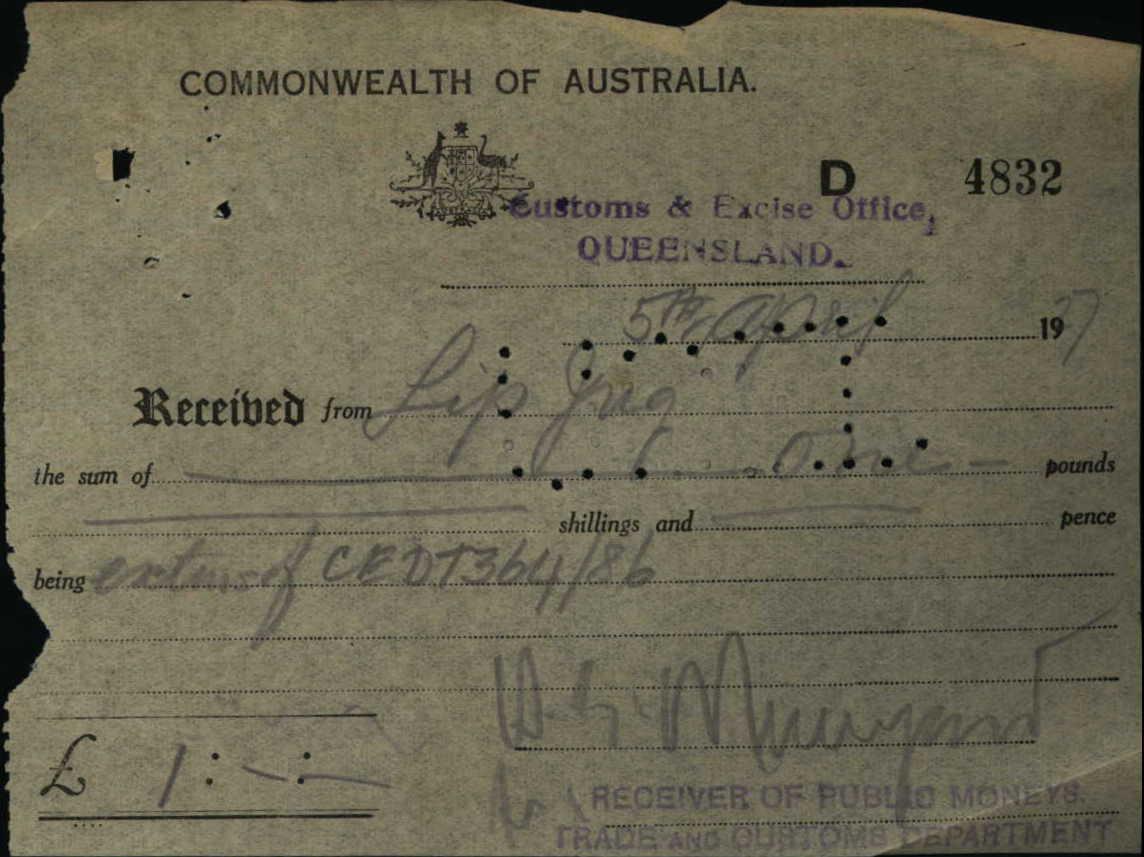 COMMONWEALTH OF AUSTRALIA.
D 4832
Customs & Excise Office,
QUEENSLAND.
5th April 1927
Received from Lip Jng
the sum of one pounds
shillings and pence
being extn of CEDT364/86
£ 1 : — : —
RECEIVER OF PUBLIC MONEYS.
TRADE AND CUSTOMS DEPARTMENT